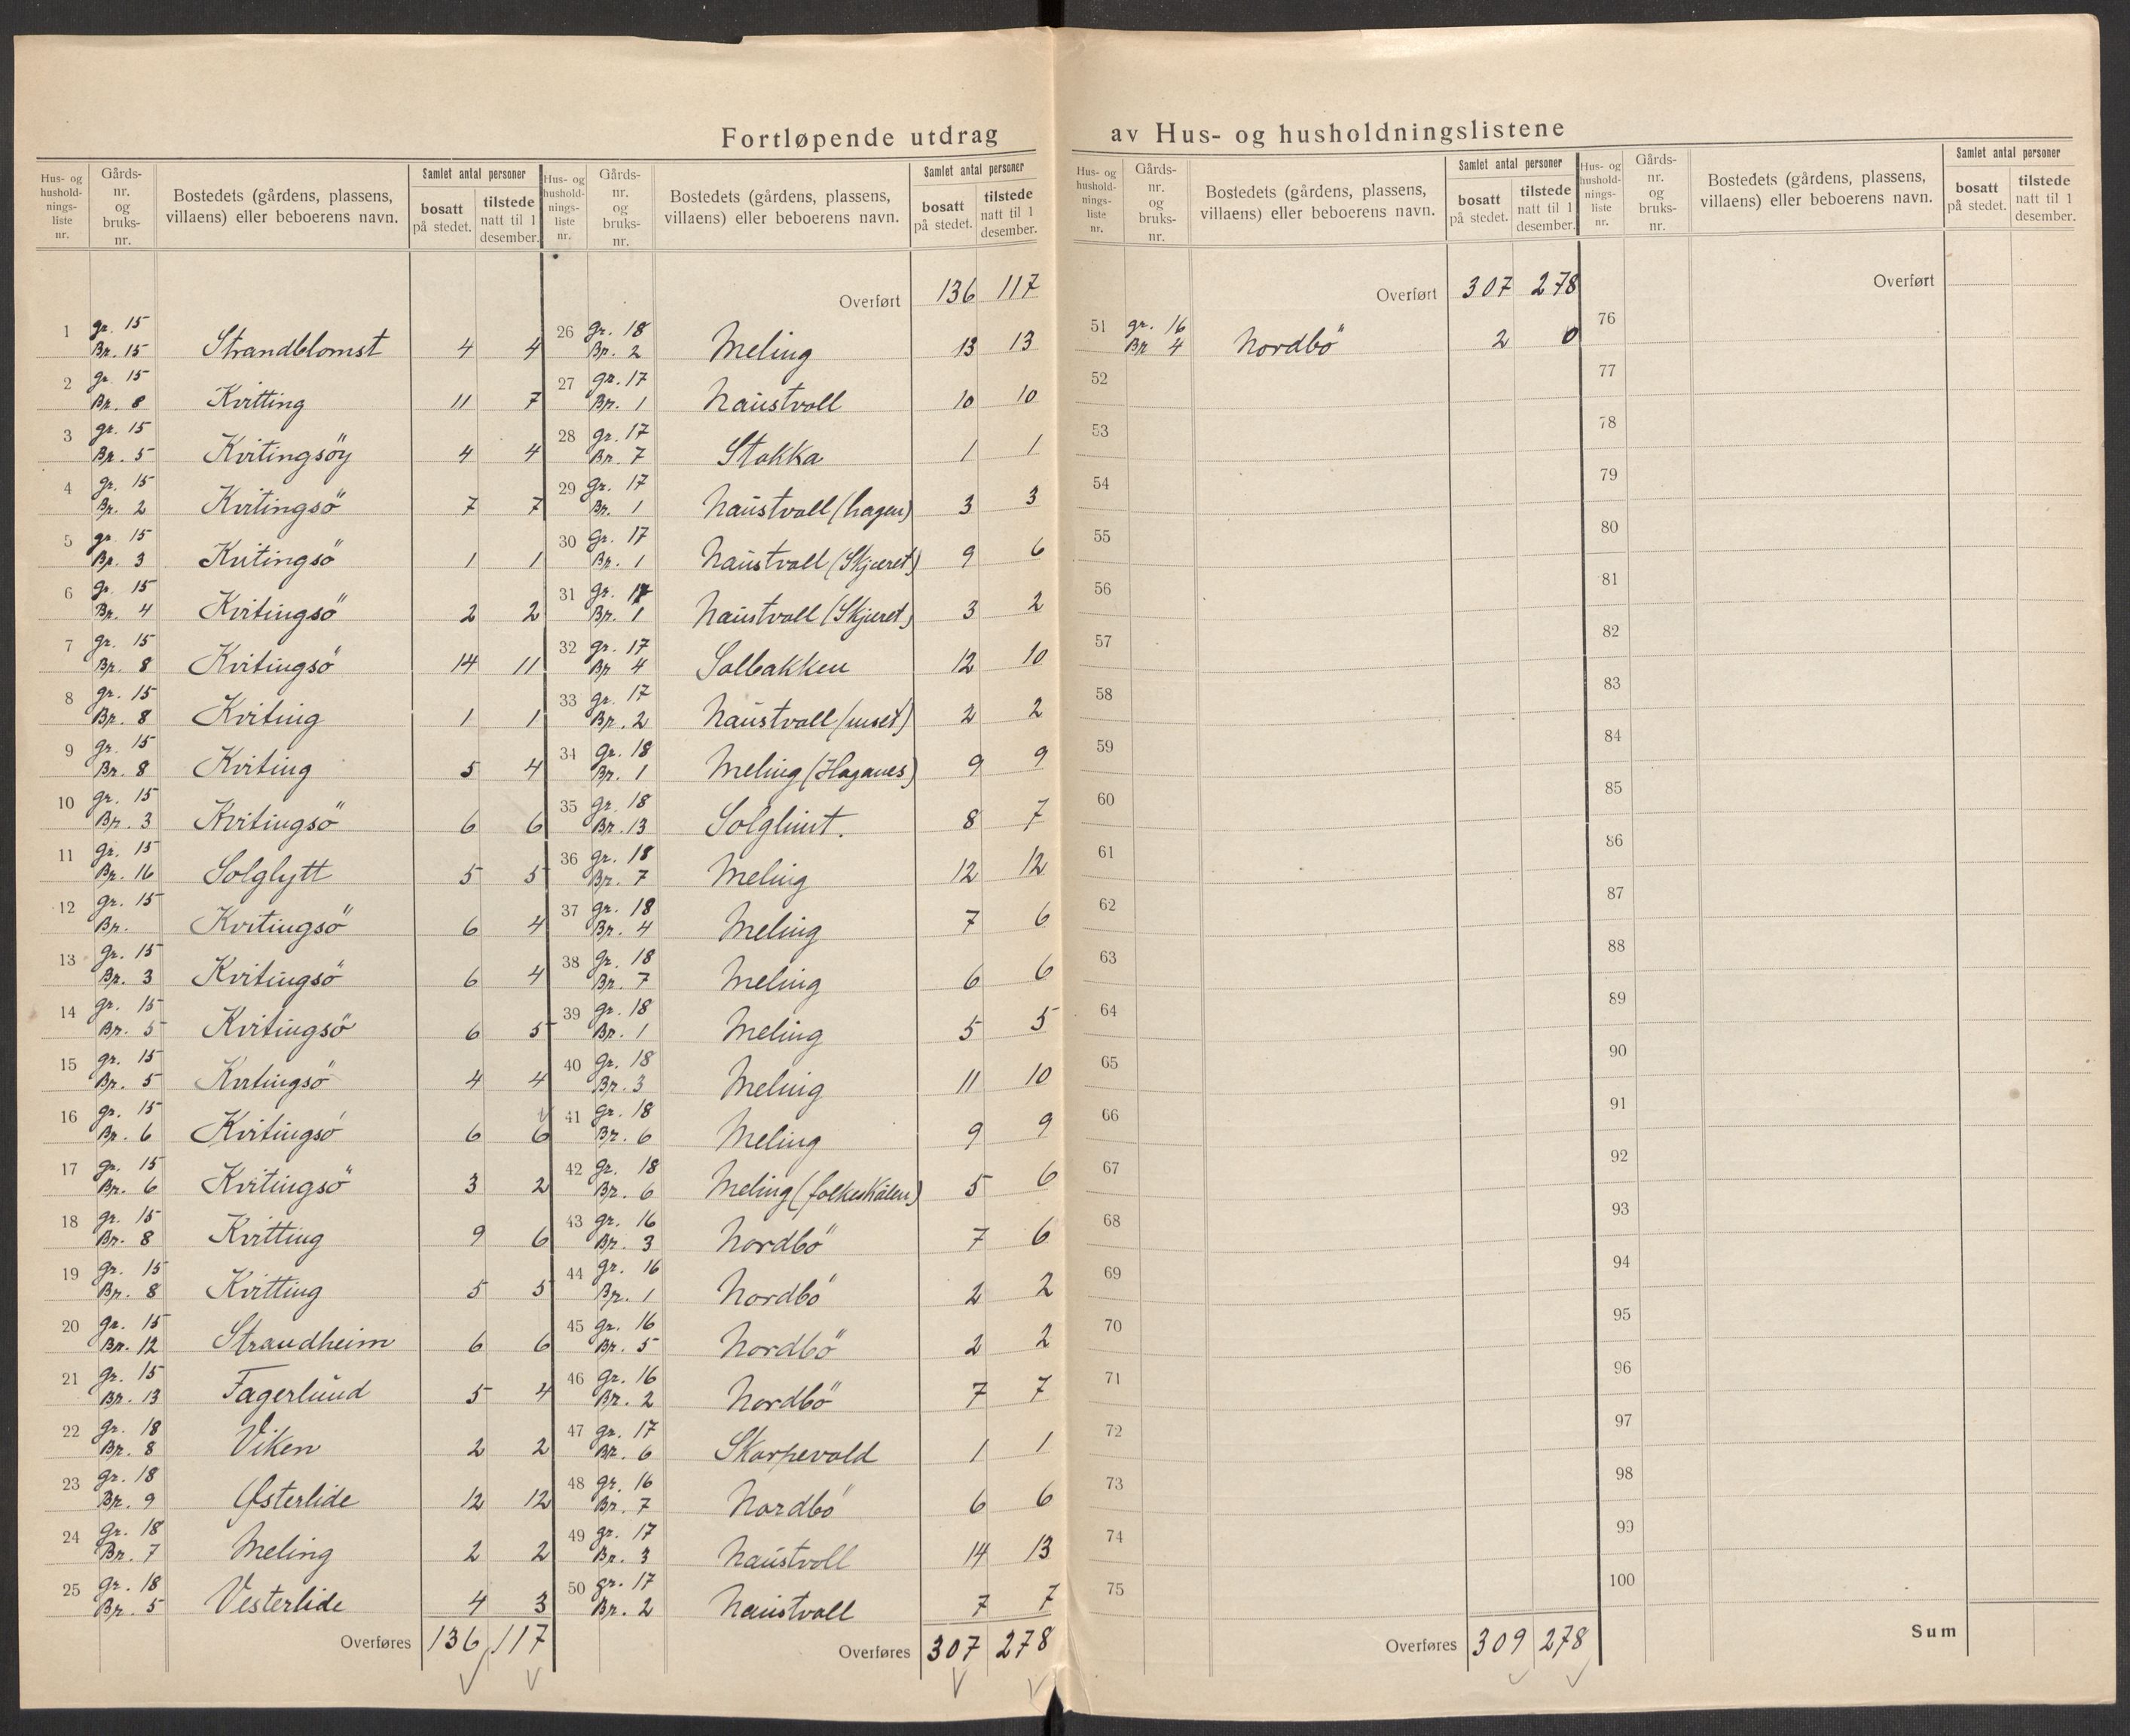 Fortløpende utdrag av Hus- og husholdningslistene
Hus- og hushold-nings-liste nr. Gårds-nr. og bruks-nr. Bostedets (gårdens, plassens, villaens) eller beboerens navn. Samlet antal personer bosatt på stedet. tilstede natt til 1 desember.
1 gr. 15 Br. 15 Strandblomst 4 4
2 gr. 15 Br. 8 Kvitting 11 7
3 gr. 15 Br. 5 Kvitingsöy 4 4
4 gr. 15 Br. 2 Kvitingsö 7 7
5 gr. 15 Br. 3 Kvitingsö 1 1
6 gr. 15 Br. 4 Kvitingsö 2 2
7 gr. 15 Br. 8 Kvitingsö 14 11
8 gr. 15 Br. 8 Kviting 1 1
9 gr. 15 Br. 8 Kviting 5 4
10 gr. 15 Br. 3 Kvitingsö 6 6
11 gr. 15 Br. 16 Solglytt 5 5
12 gr. 15 Br. Kvitingsö 6 4
13 gr. 15 Br. 3 Kvitingsö 6 4
14 gr. 15 Br. 5 Kvitingsö 6 5
15 gr. 15 Br. 5 Kvitingsö 4 4
16 gr. 15 Br. 6 Kvitingsö 6 6
17 gr. 15 Br. 6 Kvitingsö 3 2
18 gr. 15 Br. 8 Kvitting 9 6
19 gr. 15 Br. 8 Kvitting 5 5
20 gr. 15 Br. 12 Strandheim 6 6
21 gr. 15 Br. 13 Fagerlund 5 4
22 gr. 18 Br. 8 Viken 2 2
23 gr. 18 Br. 9 Østerlide 12 12
24 gr. 18 Br. 7 Meling 2 2
25 gr. 18 Br. 5 Vesterlide 4 3
Overføres 136 117
Hus- og hushold-nings-liste nr. Gårds-nr. og bruks-nr. Bostedets (gårdens, plassens, villaens) eller beboerens navn. Samlet antal personer bosatt på stedet. tilstede natt til 1 desember.
Overført 136 117
26 gr. 18 Br. 2 Meling 13 13
27 gr. 17 Br. 1 Naustvoll 10 10
28 gr. 17 Br. 7 Stokka 1 1
29 gr. 17 Br. 1 Naustvoll (hagen) 3 3
30 gr. 17 Br. 1 Naustvoll (Skjæret) 9 6
31 gr. 17 Br. 1 Naustvoll (Skjæret) 3 2
32 gr. 17 Br 4 Solbakken 12 10
33 gr. 17 Br. 2 Naustvoll 2 2
34 gr. 18 Br. 1 Meling (Haganes) 9 9
35 gr. 18 Br. 13 Solglimt. 8 7
36 gr. 18 Br. 7 Meling 12 12
37 gr. 18 Br. 4 Meling 7 6
38 gr. 18 Br. 7 Meling 6 6
39 gr. 18 Br. 1 Meling 5 5
40 gr. 18 Br. 3 Meling 11 10
41 gr. 18 Br. 6 Meling 9 9
42 gr. 18 Br. 6 Meling (folkeskulen) 5 6
43 gr. 16 Br. 3 Nordbö 7 6
44 gr. 16 Br. 1 Nordbö 2 2
45 gr. 16 Br. 5 Nordbö 2 2
46 gr. 16 Br. 2 Nordbö 7 7
47 gr. 17 Br. 6 Skarpevold 1 1
48 gr. 16 Br. 7 Nordbö 6 6
49 gr. 17 Br. 3 Naustvoll 14 13
50 gr. 17 Br. 2 Naustvoll 7 7
Overføres 307 278
Hus- og hushold-nings-liste nr. Gårds-nr. og bruks-nr. Bostedets (gårdens, plassens, villaens) eller beboerens navn. Samlet antal personer bosatt på stedet. tilstede natt til 1 desember.
Overført 307 278
51 gr. 16 Br 4 Nordbö 2 0
52
53
54
55
56
57
58
59
60
61
62
63
64
65
66
67
68
69
70
71
72
73
74
75
Overføres 309 278
Hus- og hushold-nings-liste nr. Gårds-nr. og bruks-nr. Bostedets (gårdens, plassens, villaens) eller beboerens navn. Samlet antal personer bosatt på stedet. tilstede natt til 1 desember.
Overført
76
77
78
79
80
81
82
83
84
85
86
87
88
89
90
91
92
93
94
95
96
97
98
99
100
Sum